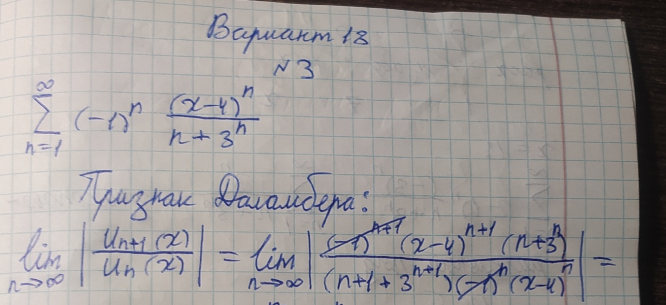 Вариант 18
N3
∞ ∑ n=1 (-1)^n (x-4)^n / (n+3^n)
Признак Даламбера:
lim n→∞ |u_{n+1}(x) / u_n(x)| = lim n→∞ |(-1)^{n+1} (x-4)^{n+1} (n+3^n) / ((n+1+3^{n+1}) (-1)^n (x-4)^n)| =